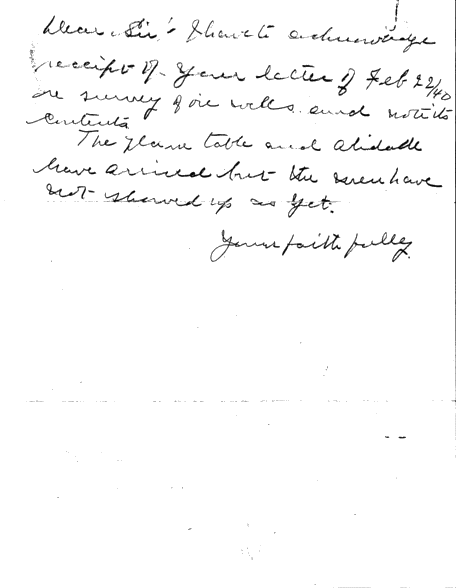 Dear Sir:- I have to acknowledge
receipt of your letter of Feb 22/40
re survey of oil wells and note its
contents
The plane table and alidade
have arrived but the men have
not showed up as yet.
Yours faithfully